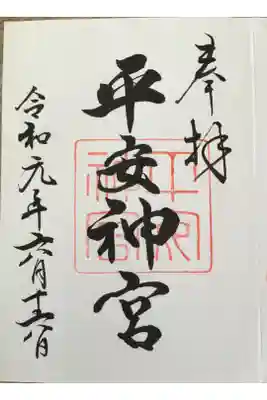 奉拝
平安神宮
令和元年六月十六日